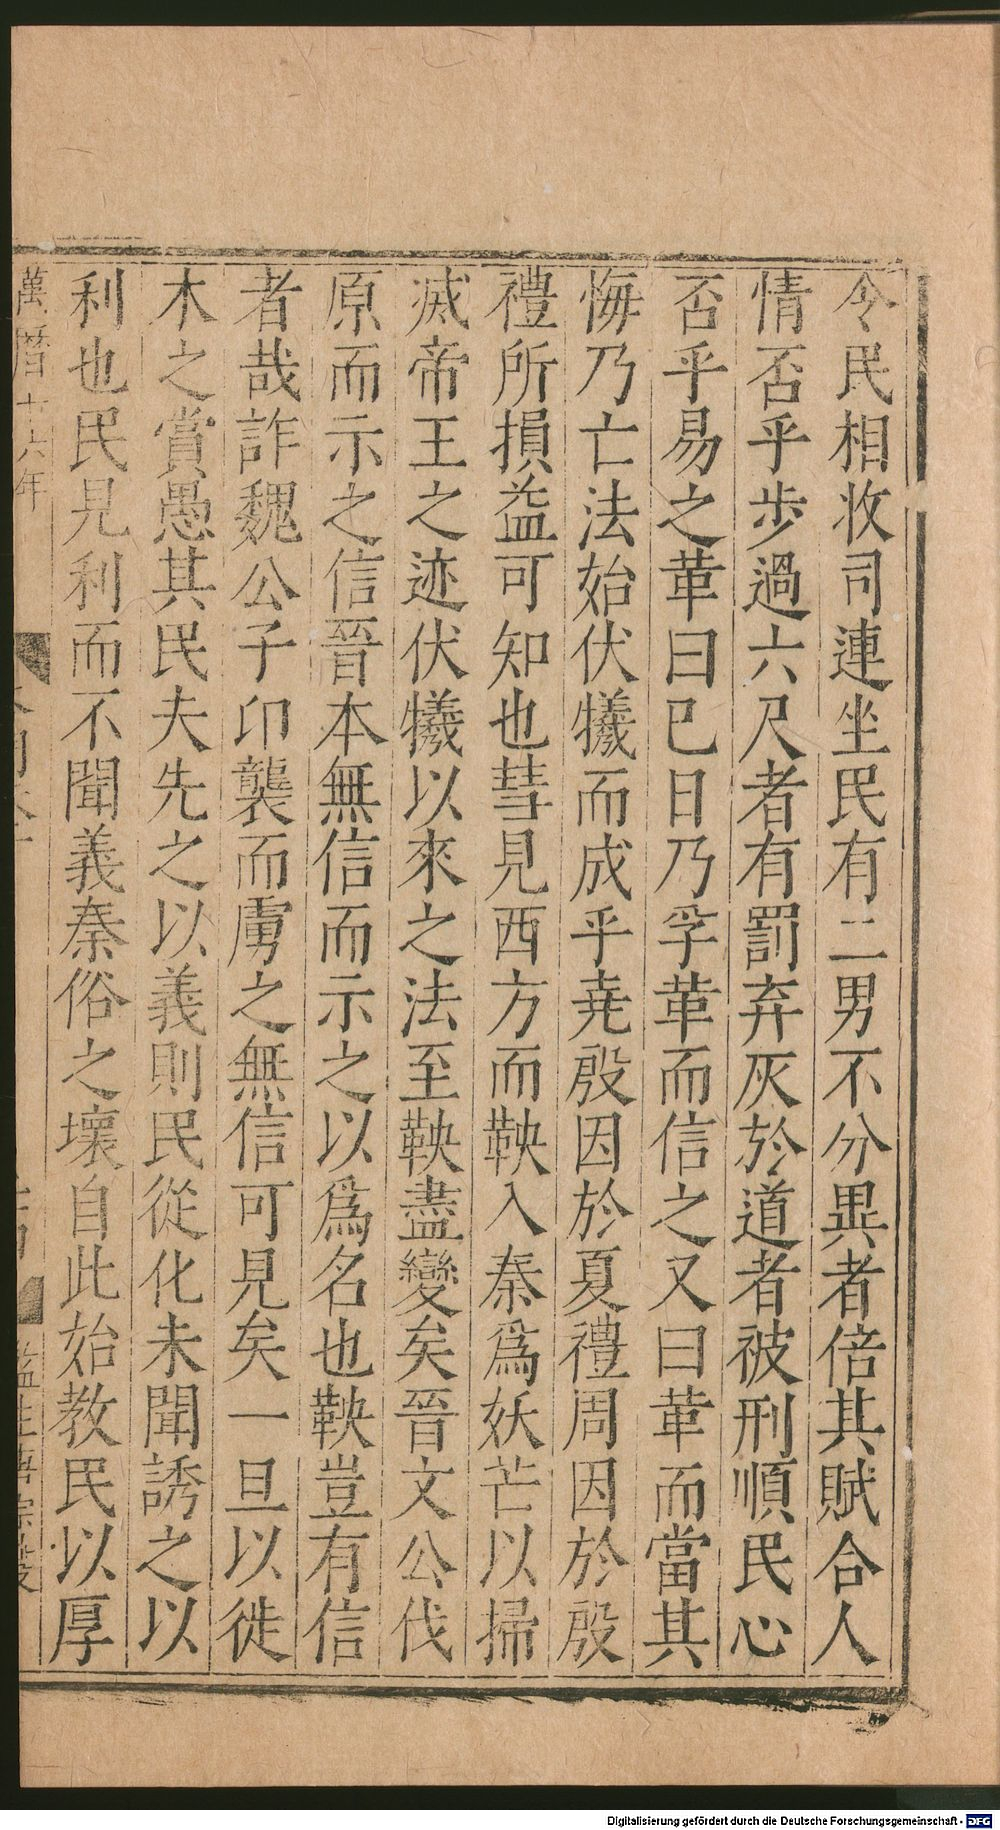 令民相收司連坐民有二男不分異者倍其賦合人
情否乎步過六尺者有罰弃灰於道者被刑順民心
否乎易之革曰巳日乃孚革而信之又曰革而當其
悔乃亡法始伏犧而成乎堯殷因於夏禮周因於殷
禮所損益可知也彗見西方而鞅入秦爲妖芒以掃
滅帝王之迹伏犧以來之法至鞅盡變矣晉文公伐
原而示之信晉本無信而示之以爲名也鞅豈有信
者哉詐魏公子卬襲而虜之無信可見矣一旦以徙
木之賞愚其民夫先之以義則民從化未聞誘之以
利也民見利而不聞義秦俗之壞自此始教民以厚
萬曆十六年
Digitalisierung gefördert durch die Deutsche Forschungsgemeinschaft - DFG